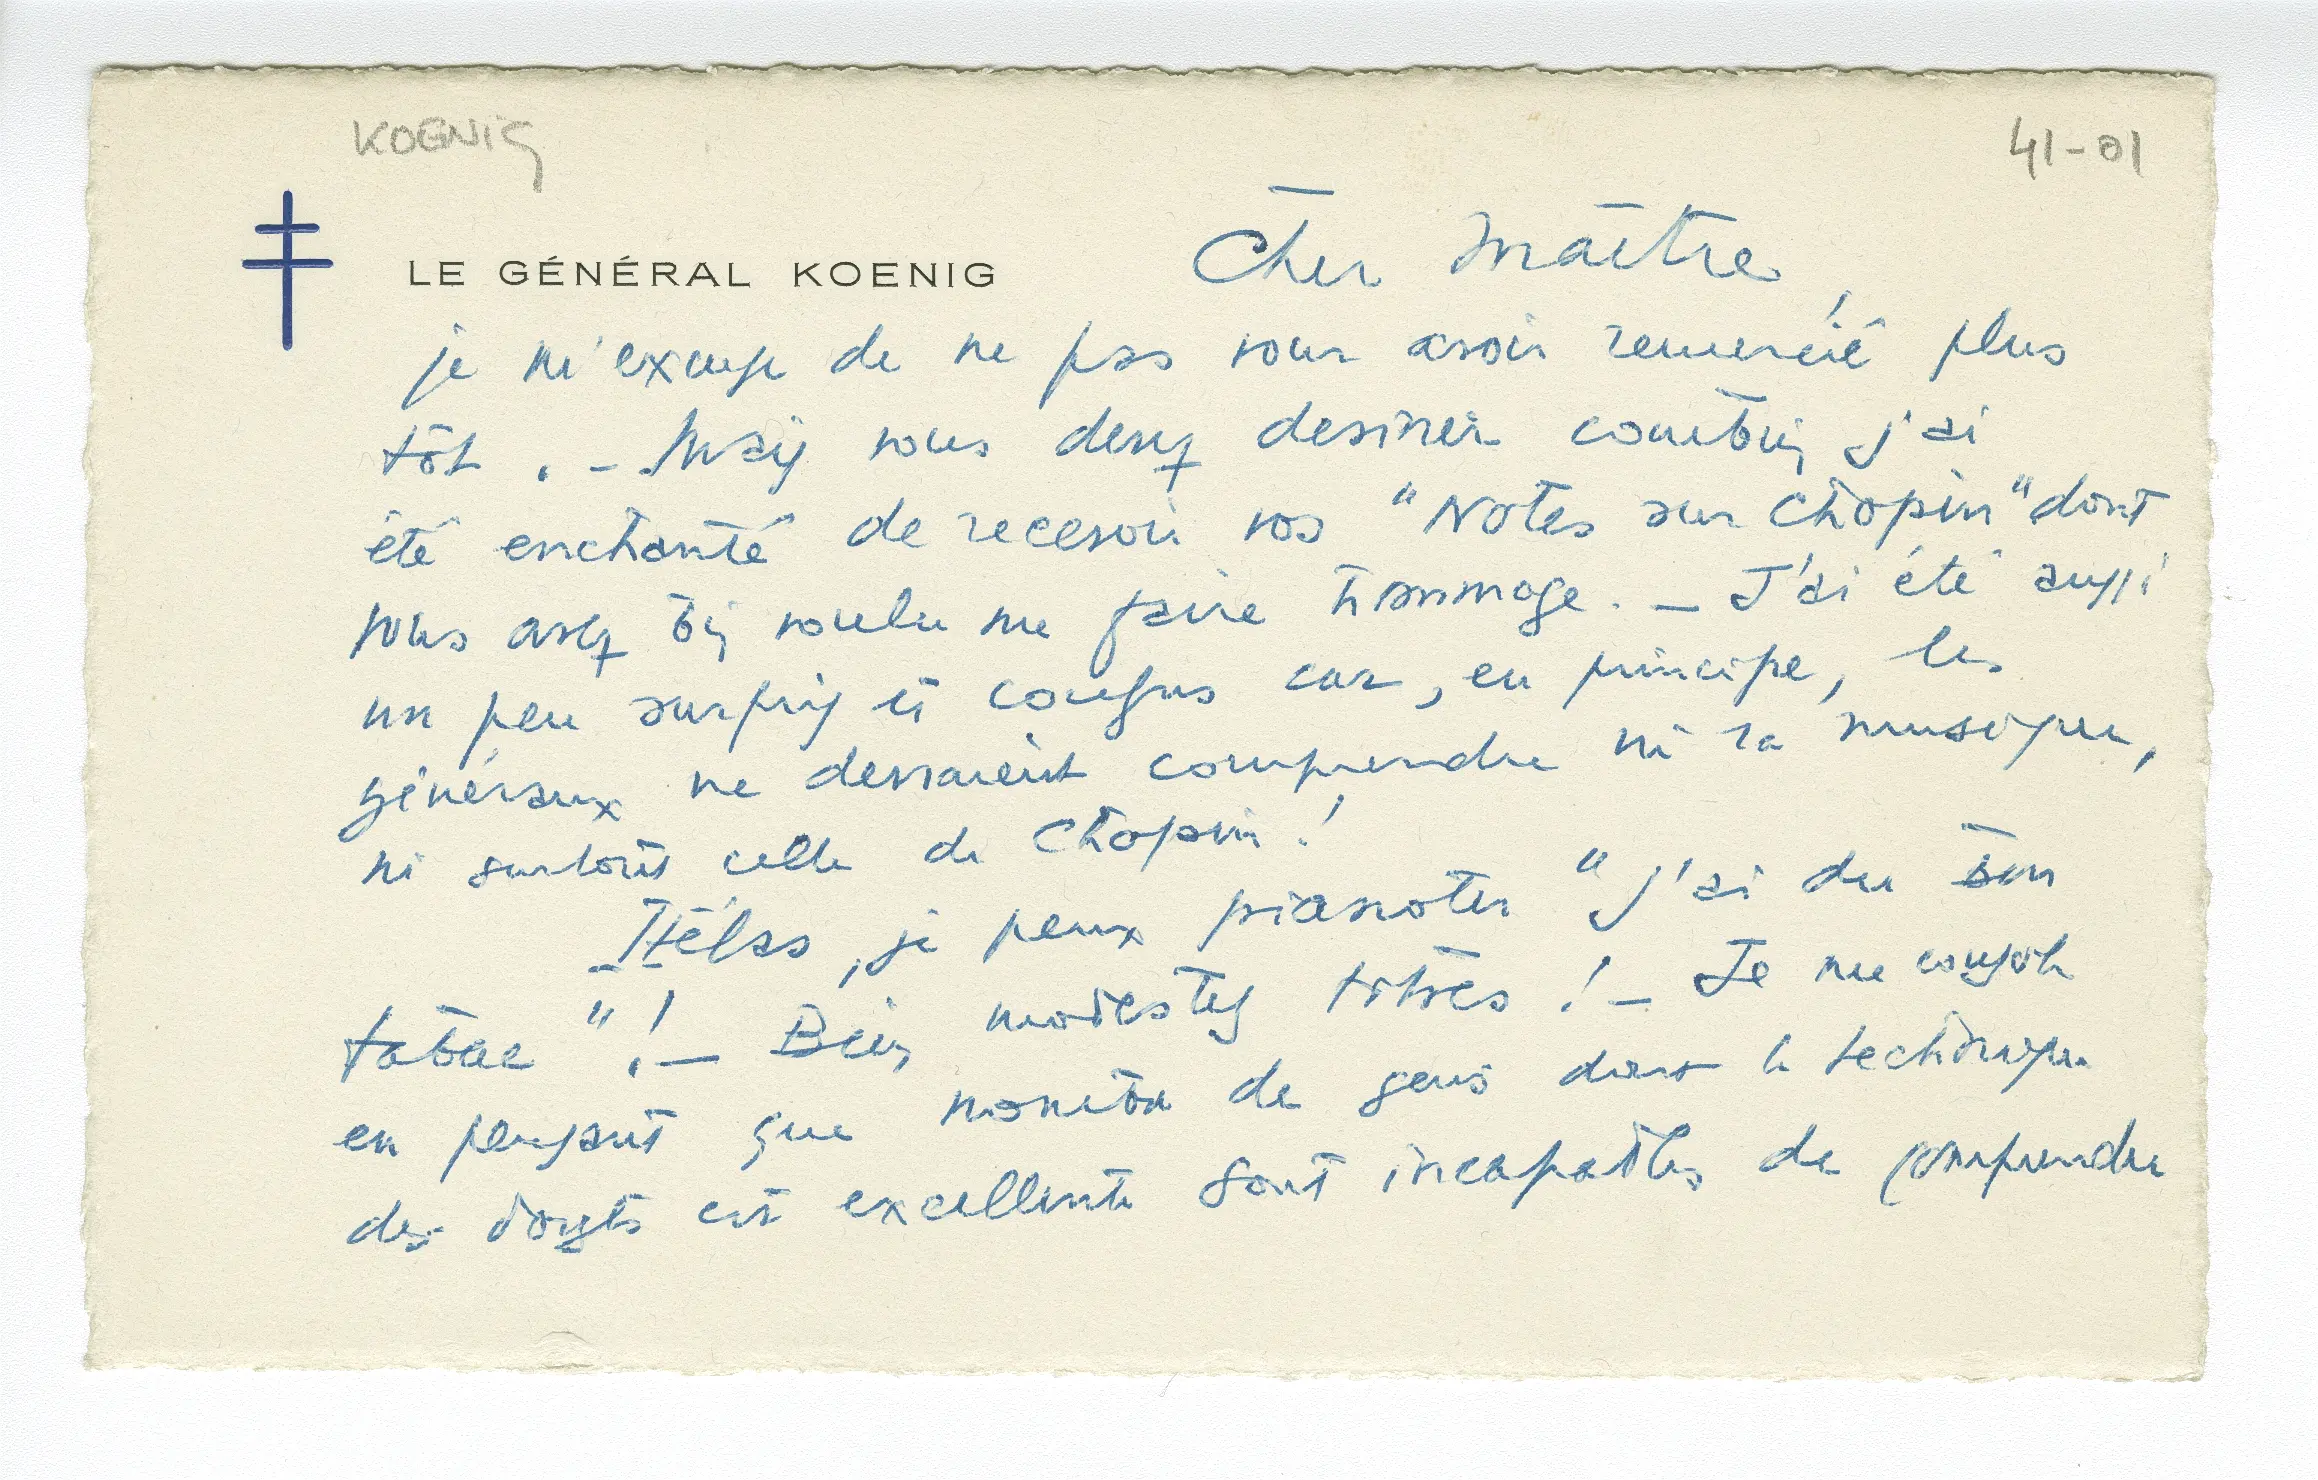 KOENIG
41-01
LE GÉNÉRAL KOENIG
Cher Maître,
je m'excuse de ne pas vous avoir remercié plus
tôt. - Mais vous devez deviner combien j'ai
été enchanté de recevoir vos "Notes sur Chopin" dont
vous avez bien voulu me faire hommage. - J'ai été aussi
un peu surpris et confus car, en principe, les
généraux ne devraient comprendre ni la musique,
ni surtout celle de Chopin !
Hélas, je peux pianoter "J'ai du bon
tabac" ! - Bien modestes titres ! - Je me console
en pensant que nombre de gens dont la technique
des doigts est excellente sont incapables de comprendre